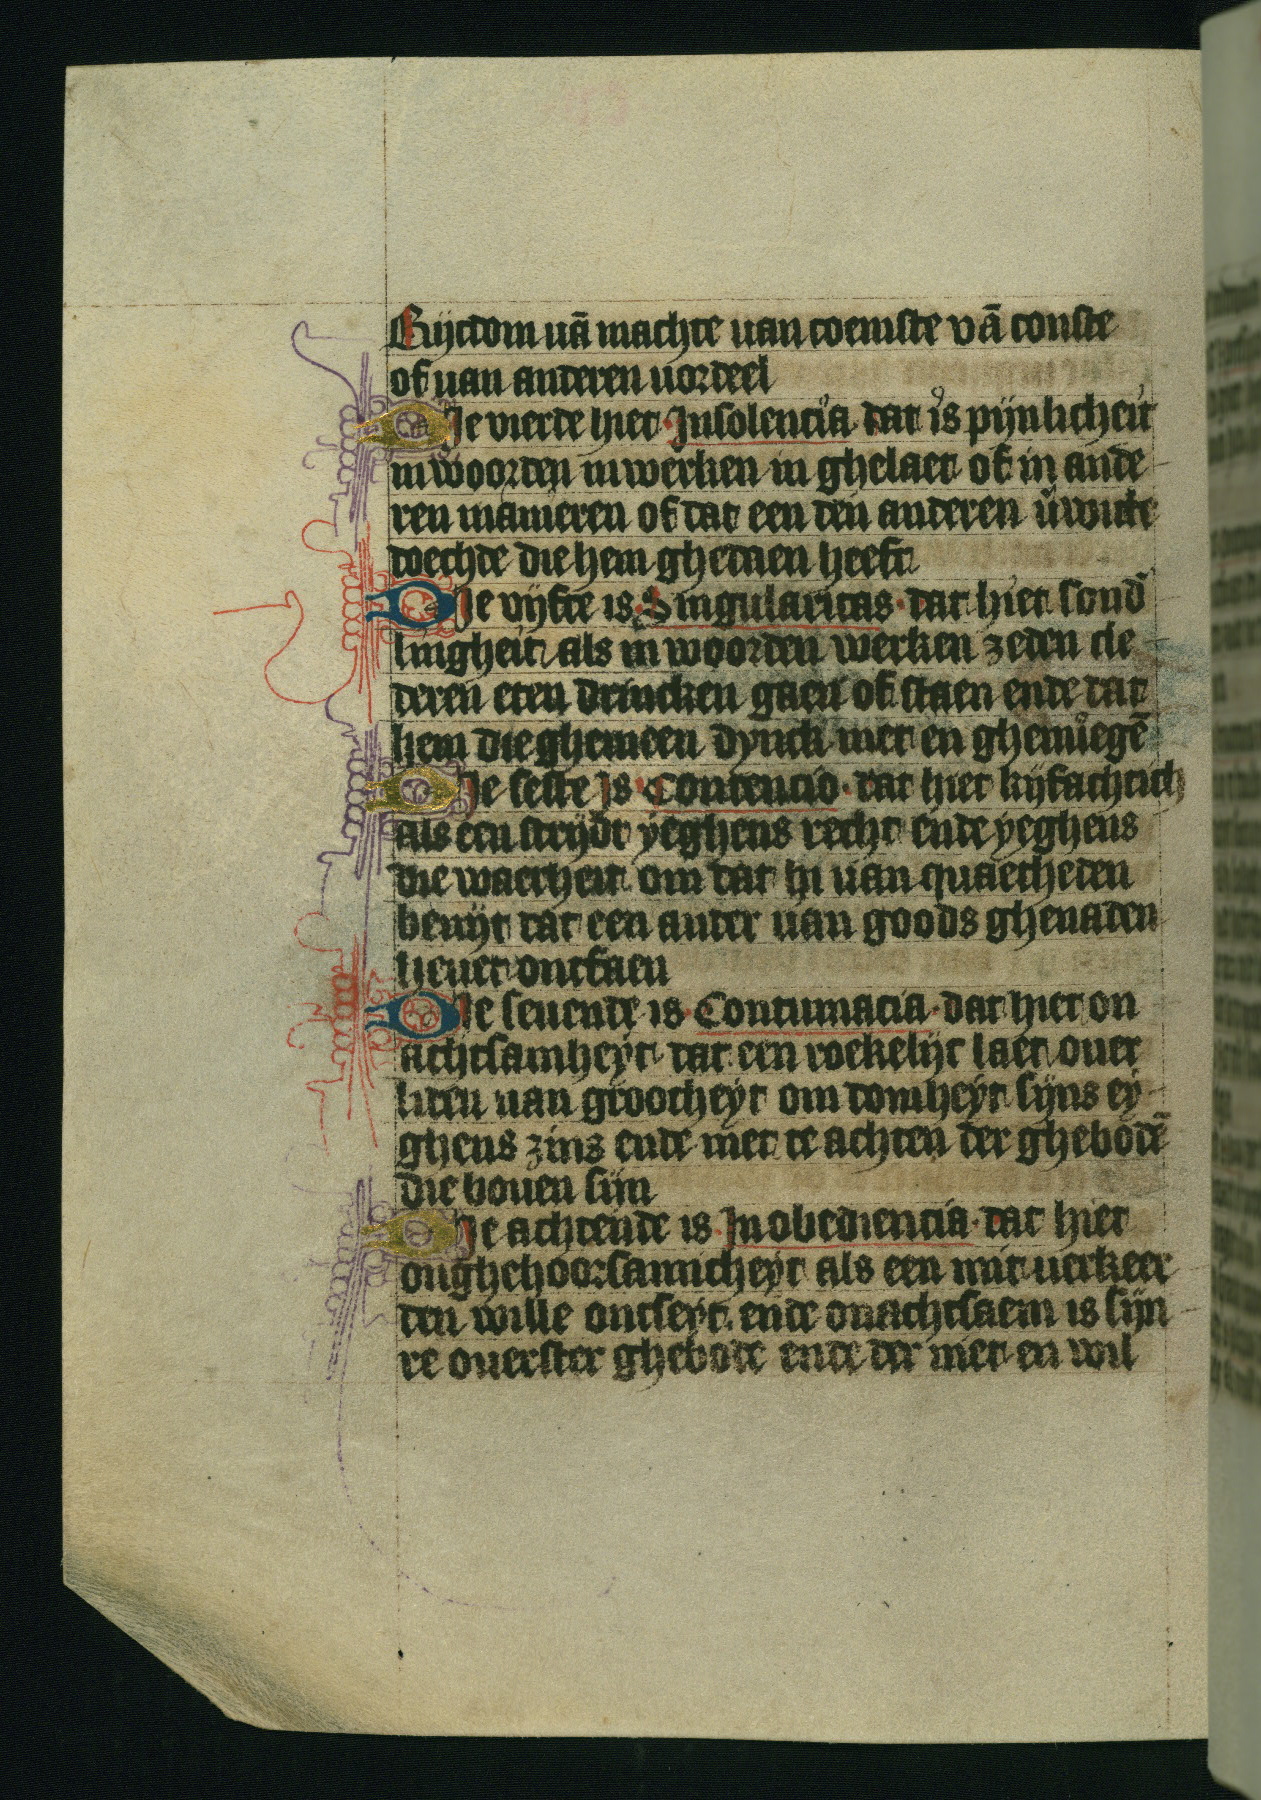 Rijcdom uā machte uan coemste vā conste
of uan anderen uordeel
Die vierde hiet Insolencia dat is pijnlicheit
in woorden in werken in ghelaet of in ande
ren manieren of dat een den anderen
doechde die hem ghedaen heeft
Die vijfte is Singularitas dat hiet sond̄
lingheit als in woorden werken zeden cle
deren eten drincken gaen of staen ende dat
hem die ghemeen dynck niet en ghenůegē
Die seste is Contencio dat hiet kijfachtich
als een strijdt yeghens recht ende yeghens
die waerheit om dat hi uan quaetheden
benijt dat een ander uan goods ghenaden
heuet ontfaen
Die seuende is Contumacia dat hiet on
achtsamheyt dat een roekelijc laet ouer
liden uan grootheyt om domheyt sijns ey
ghens zins ende niet te achten der ghebodē
die bouen sijn
Die achtende is Inobediencia dat hiet
onghehoorsamicheyt als een mit uerkeer
den wille ontseyt ende onachtsaem is sijn
re ouerster ghebode ende der niet en wil